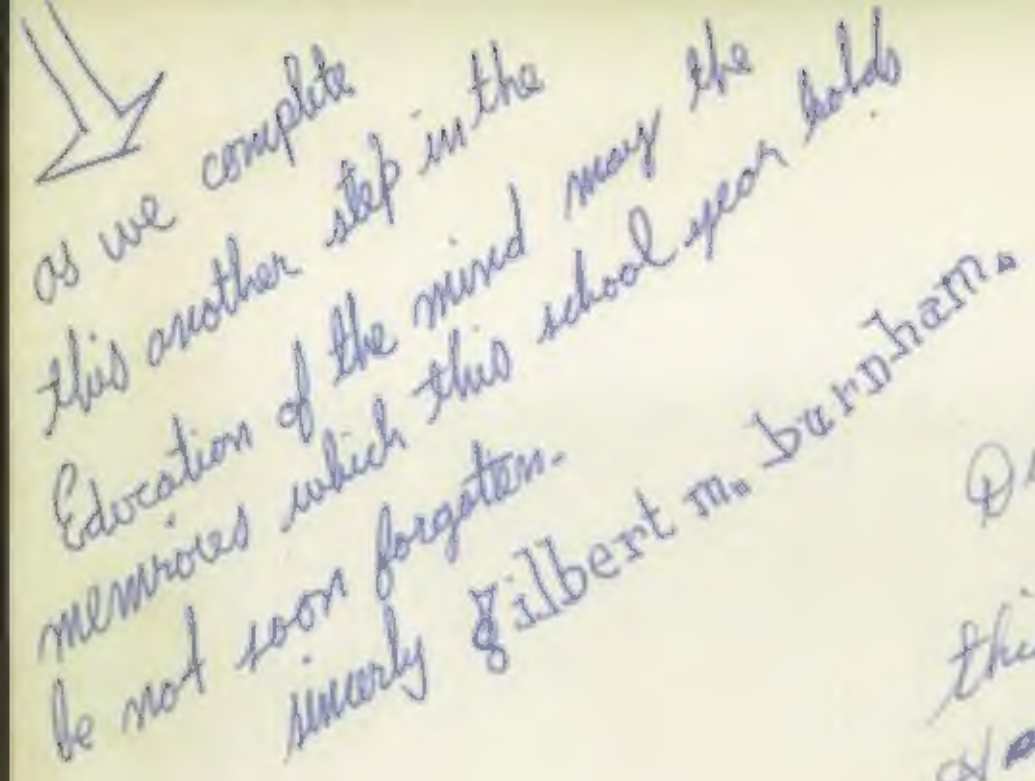 as we complete
this another step in the
Edocation of the mind may the
memroies which this school year holds
be not soon forgoten.
sincerly gilbert m. burnham.
thi